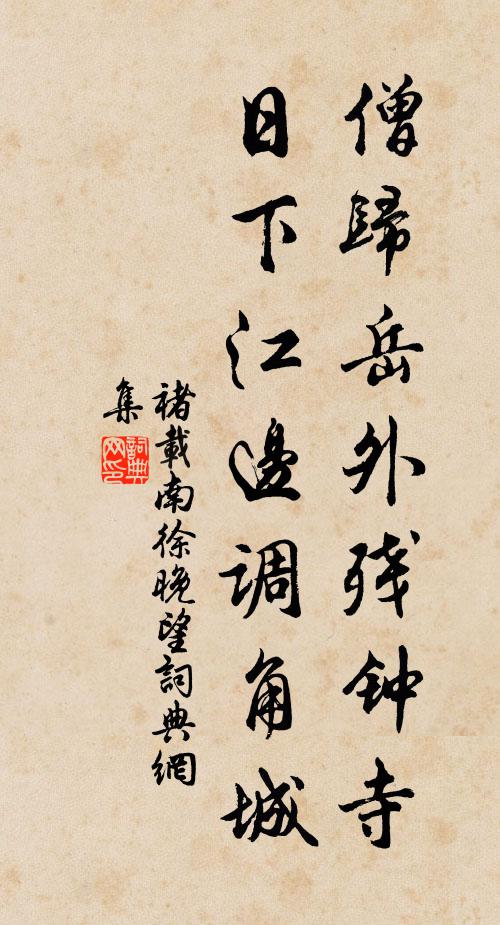 僧歸岳外残钟寺
日下江邊调角城
褚載南徐晚望詞典網
集
詞典
网印